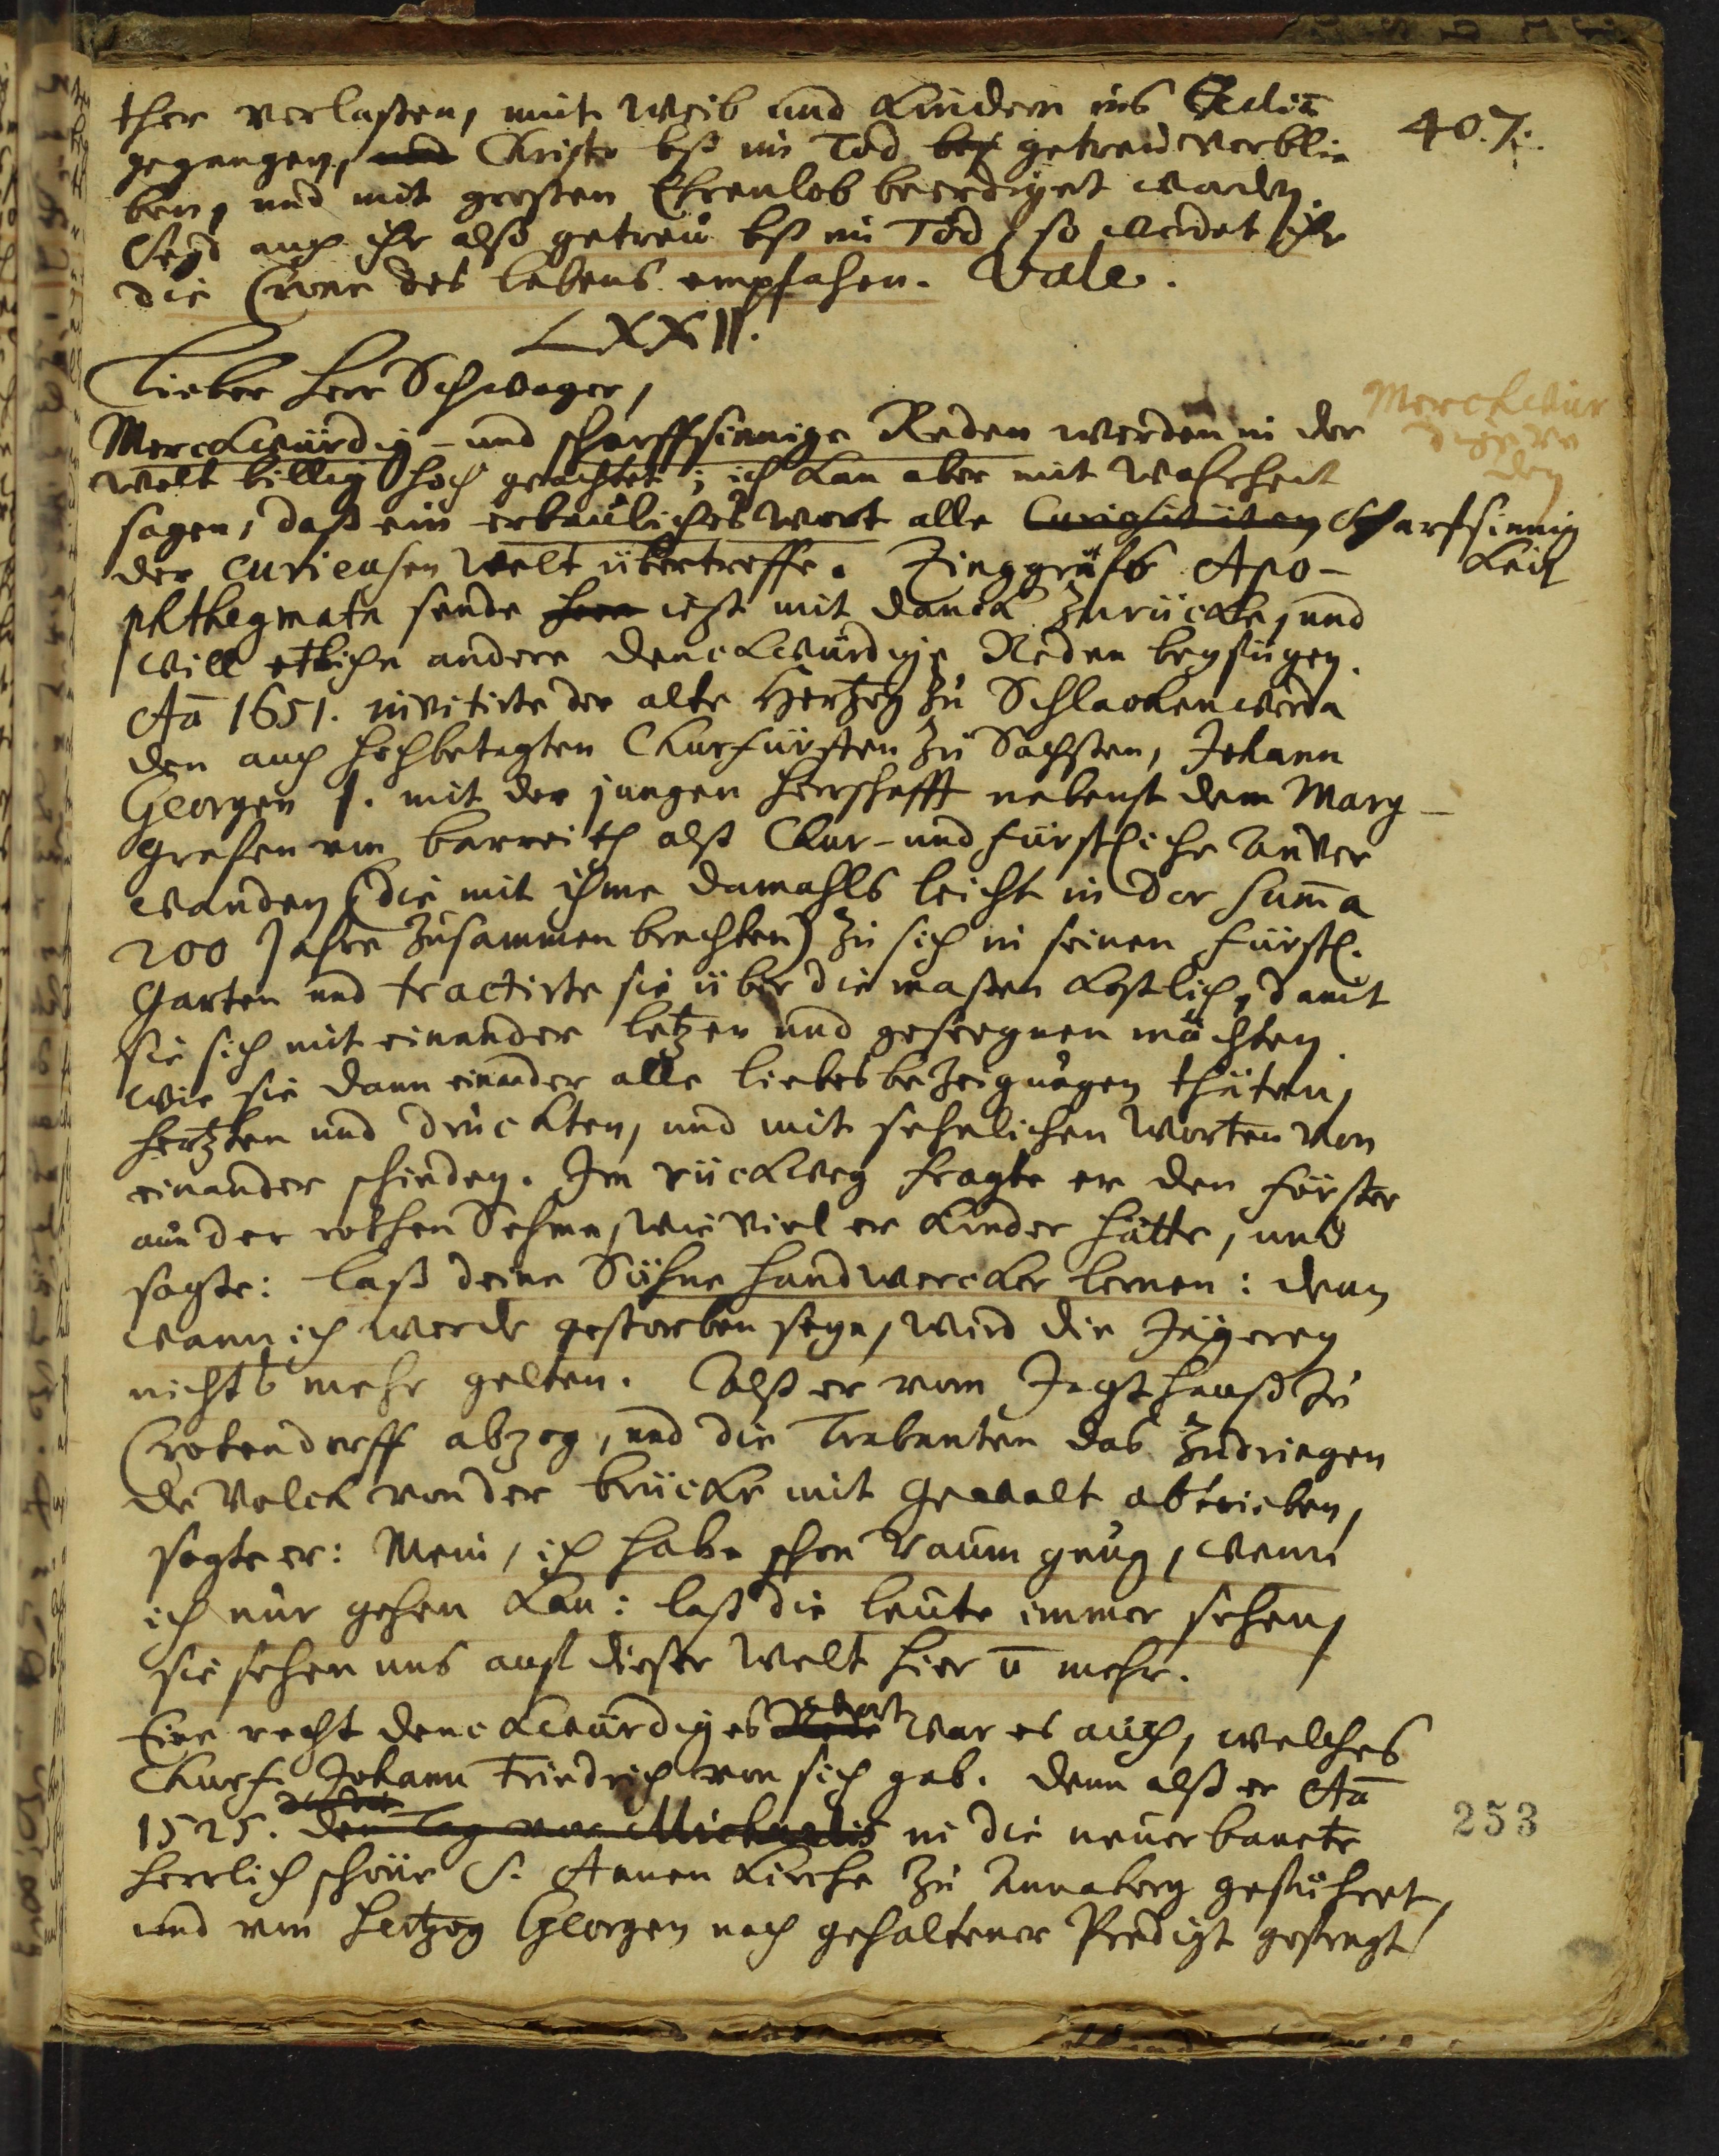 407.
ther verlaßen, mit Weib und Kindern ins Exiliū
gegangen, und Christo biß in Tod getreu verblie
ben, und mit großen Ehrenlob beerdiget worden.
Seyd auch ihr also getreu biß in Tod, so werdet ihr
die Crone des lebens empfahen. Vale.
LXXII.
Lieber Herr Schwager,
Merckwürdig- und scharffsinnige Reden werden in der
Merckwür
dige re
den
Welt billig hoch geachtet; ich kan aber mit Wahrheit
sagen, daß ein erbauliches Wort alle Curiositäten Scharfsinnig
keit
der curieusen Welt übertreffe. Zinggräfs Apo-
phthegmata sende iezt mit danck zurücke, und
will etliche andere denckwürdige Reden beyfügen.
Aō 1651. invitirte der alte Hertzog zu Schlackenwerda
den auch hochbetagten Churfürsten zu Sachsen, Johann
Georgen I. mit der jungen Herrschafft nebenst dem Marg-
grafen von Barreith alß Chur- und fürstliche Anver
wanden (die mit ihme damahls leicht in der Summa
200 Jahre zusammen brachten) zu sich in seinen fürstl.
Garten und tractirte sie über die maßen köstlich, damit
sie sich mit einander letzen und geseegnen möchten.
wie sie dann einander alle liebesbezeigungen thäten,
hertzten und drückten, und mit sehnlichen Worten von
einander schieden. Im rückweg fragte er den förster
aŭn der rothen Sehma, wie viel er Kinder hätte, und
sagte: laß deine Söhne handwercker lernen: denn
wann ich werde gestorben seyn, wird die Jägerey
nichts mehr gelten. Alß er vom Jagthauß zu
Crotendorff abzog, und die Trabanten das zudringen
de Volck von der brücke mit Gewalt abtrieben,
sagte er: Mein, ich habe schon Raum gnug, wenn
ich nur gehen kan: laß die leute immer sehen,
sie sehen uns auf dieser Welt hier ū mehr.
Eine recht denckwürdiges Rede Wort war es auch, welches
Churf. Johann Friedrich von sich gab. denn alß er Aō
1525. den Tag vor Michaelis in die neuerbauete
herrlich schöne S. Annen Kirche zu Annaberg geführet,
und von Hertzog Georgen nach gehaltener Predigt gefragt
253